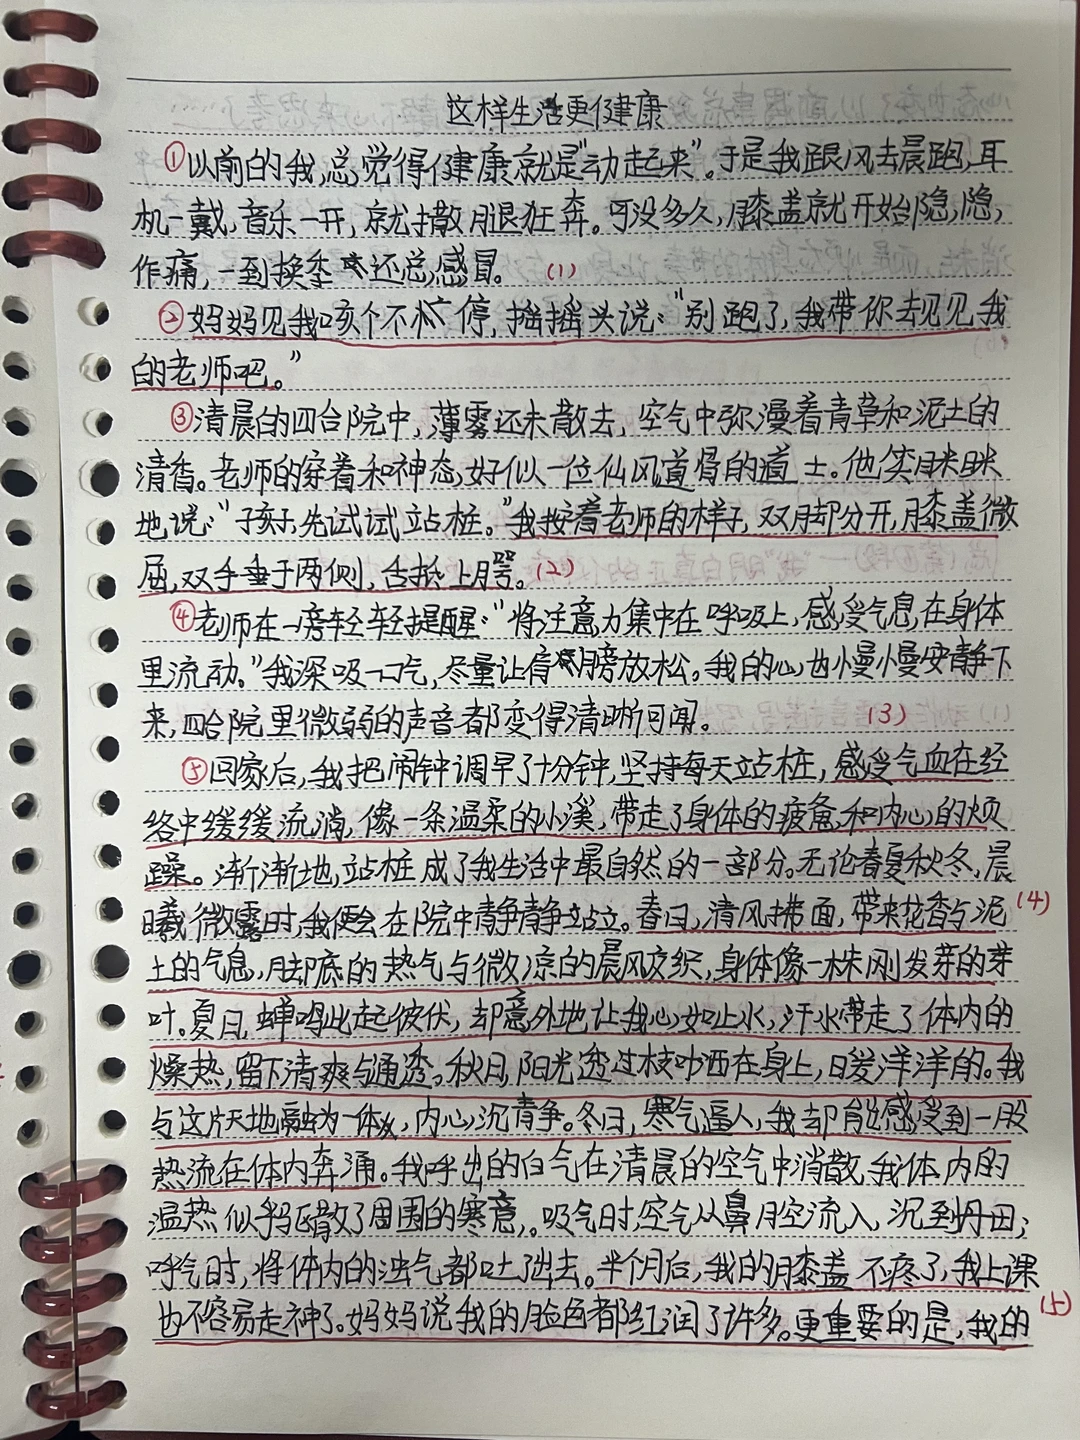 这样生活更健康
①以前的我,总觉得健康就是"动起来"。于是我跟风去晨跑,耳
机一戴,音乐一开,就撒腿狂奔。可没多久,膝盖就开始隐隐
作痛,一到换季还总感冒。 (1)
②妈妈见我咳个不停,摇摇头说:"别跑了,我带你去见见我
的老师吧。"
③清晨的四合院中,薄雾还未散去,空气中弥漫着青草和泥土的
清香。老师的穿着和神态,好似一位仙风道骨的道士。他笑眯眯
地说:"孩子,先试试站桩。"我按着老师的样子,双脚分开,膝盖微
屈,双手垂于两侧,舌抵上腭。(2)
④老师在一旁轻轻提醒:"将注意力集中在呼吸上,感受气息在身体
里流动。"我深吸一口气,尽量让肩膀放松。我的心也慢慢安静下
来,四合院里微弱的声音都变得清晰可闻。 (3)
⑤回家后,我把闹钟调早了十分钟,坚持每天站桩,感受气血在经
络中缓缓流淌,像一条温柔的小溪,带走了身体的疲惫和内心的烦
躁。渐渐地,站桩成了我生活中最自然的一部分。无论春夏秋冬,晨
曦微露时,我便会在院中静静站立。春日,清风拂面,带来花香与泥 (4)
土的气息,脚底的热气与微凉的晨风交织,身体像一株刚发芽的芽
叶。夏日,蝉鸣此起彼伏,却意外地让我心如止水,汗水带走了体内的
燥热,留下清爽与通透。秋日,阳光透过枝叶洒在身上,暖洋洋的。我
与这片天地融为一体,内心沉静。冬日,寒气逼人,我却能感受到一股
热流在体内奔涌。我呼出的白气在清晨的空气中消散,我体内的
温热似乎驱散了周围的寒意。吸气时,空气从鼻腔流入,沉到丹田;
呼气时,将体内的浊气都吐了出去。半个月后,我的膝盖不疼了,我上课
也不容易走神了。妈妈说我的脸色都红润了许多。更重要的是,我的 (5)